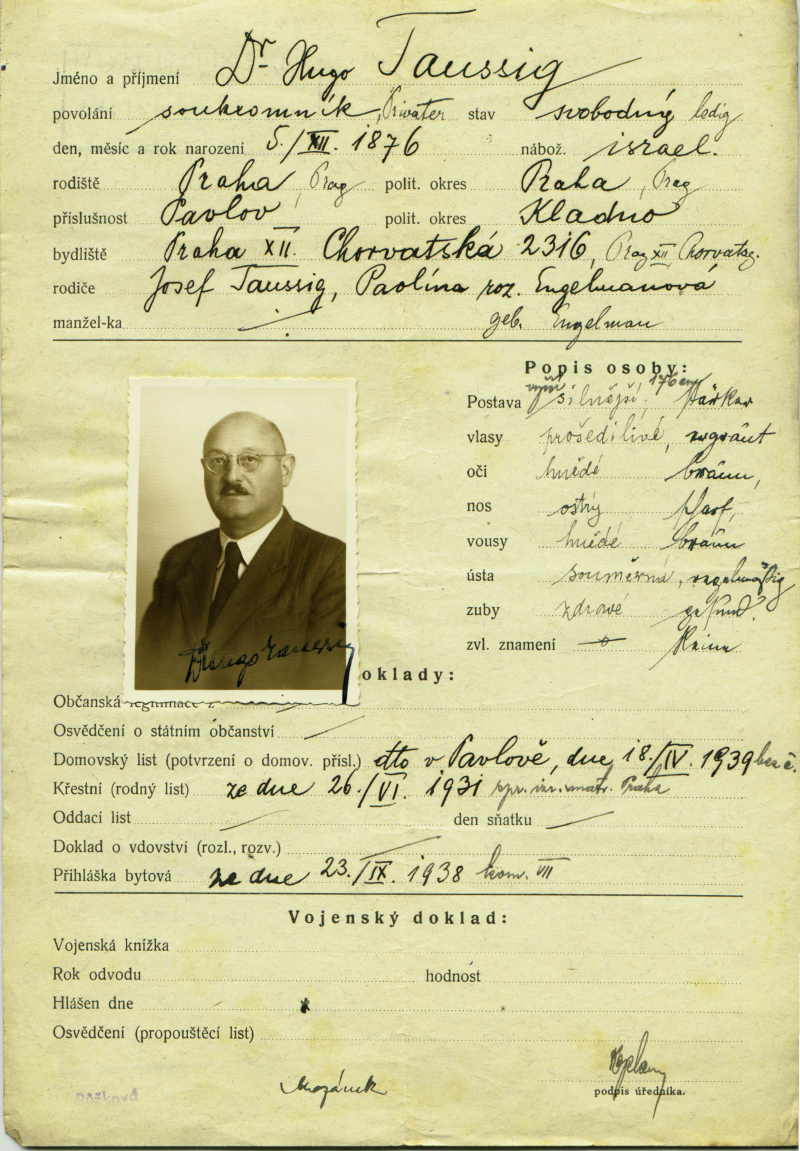 Jméno a příjmení Dr. Hugo Taussig
povolání soukromník, Privater stav svobodný ledig
den, měsíc a rok narození 5./XII. 1876 nábož. israel.
rodiště Praha, Prag polit. okres Praha, Prag
příslušnost Pavlov polit. okres Kladno
bydliště Praha XII. Chorvatská 2316, Prag XII Chorvatsg.
rodiče Josef Taussig, Paolína roz. Engelmanová
manžel-ka geb. Engelman
Popis osoby:
Postava silnější, 176 cm stärker
vlasy prošedilivé,
oči hnědé braun,
nos ostrý scharf,
vousy hnědé braun
ústa souměrná, regelmäßig
zuby zdravé gesund.
zvl. znamení Keine
Dr Hugo Taussig
oklady:
Občanská legitimace
Osvědčení o státním občanství
Domovský list (potvrzení o domov. přísl.) dto v Pavlově, dne 18./IV. 1939 bez č.
Křestní (rodný list) ze dne 26./VI. 1931 izr. matr. Praha
Oddací list den sňatku
Doklad o vdovství (rozl., rozv.)
Přihláška bytová ze dne 23./IX. 1938 kom. VII
Vojenský doklad:
Vojenská knížka
Rok odvodu hodnost
Hlášen dne
Osvědčení (propouštěcí list)
podpis úředníka.